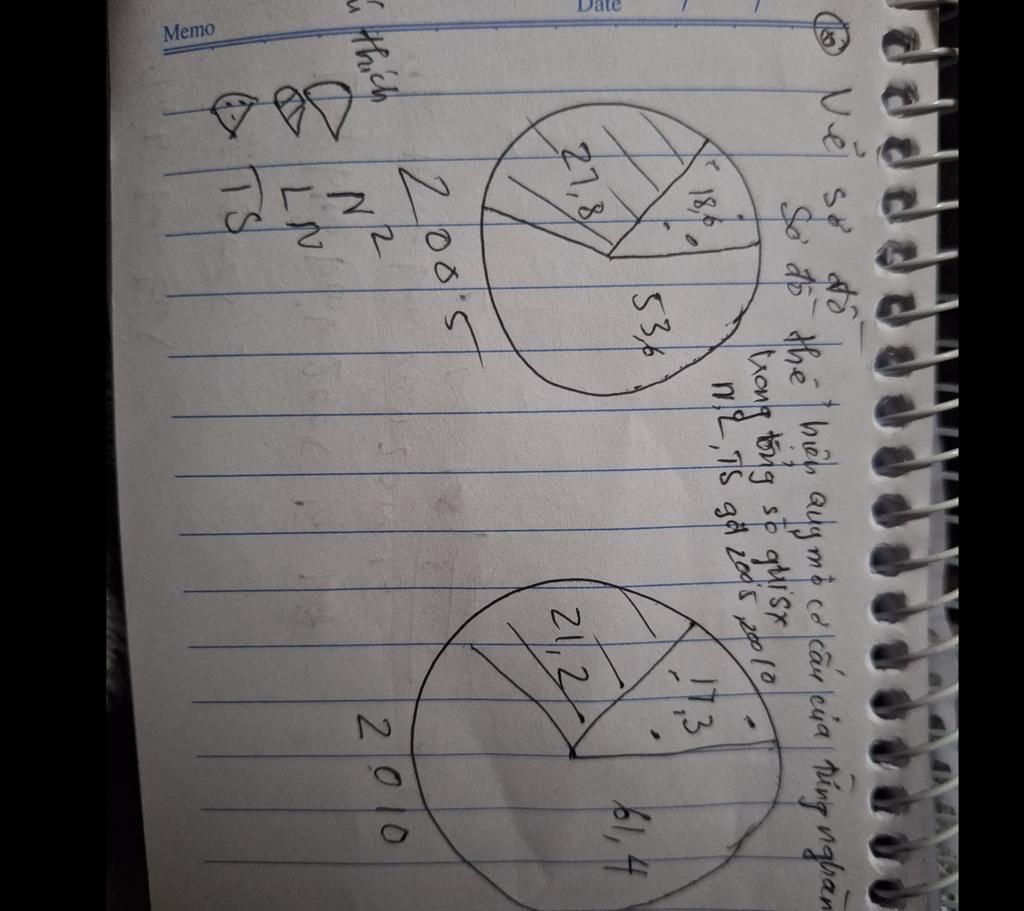 Memo
Date / /
Vẽ sơ đồ
Sơ đồ thể hiện quy mô cơ cấu của từng nghàn
trong tổng số giá sx
N, L, TS gđ 2005, 20010
18,6
27,8
53,6
17,3
21,2
61,4
2005
2010
thích
N2
LN
TS